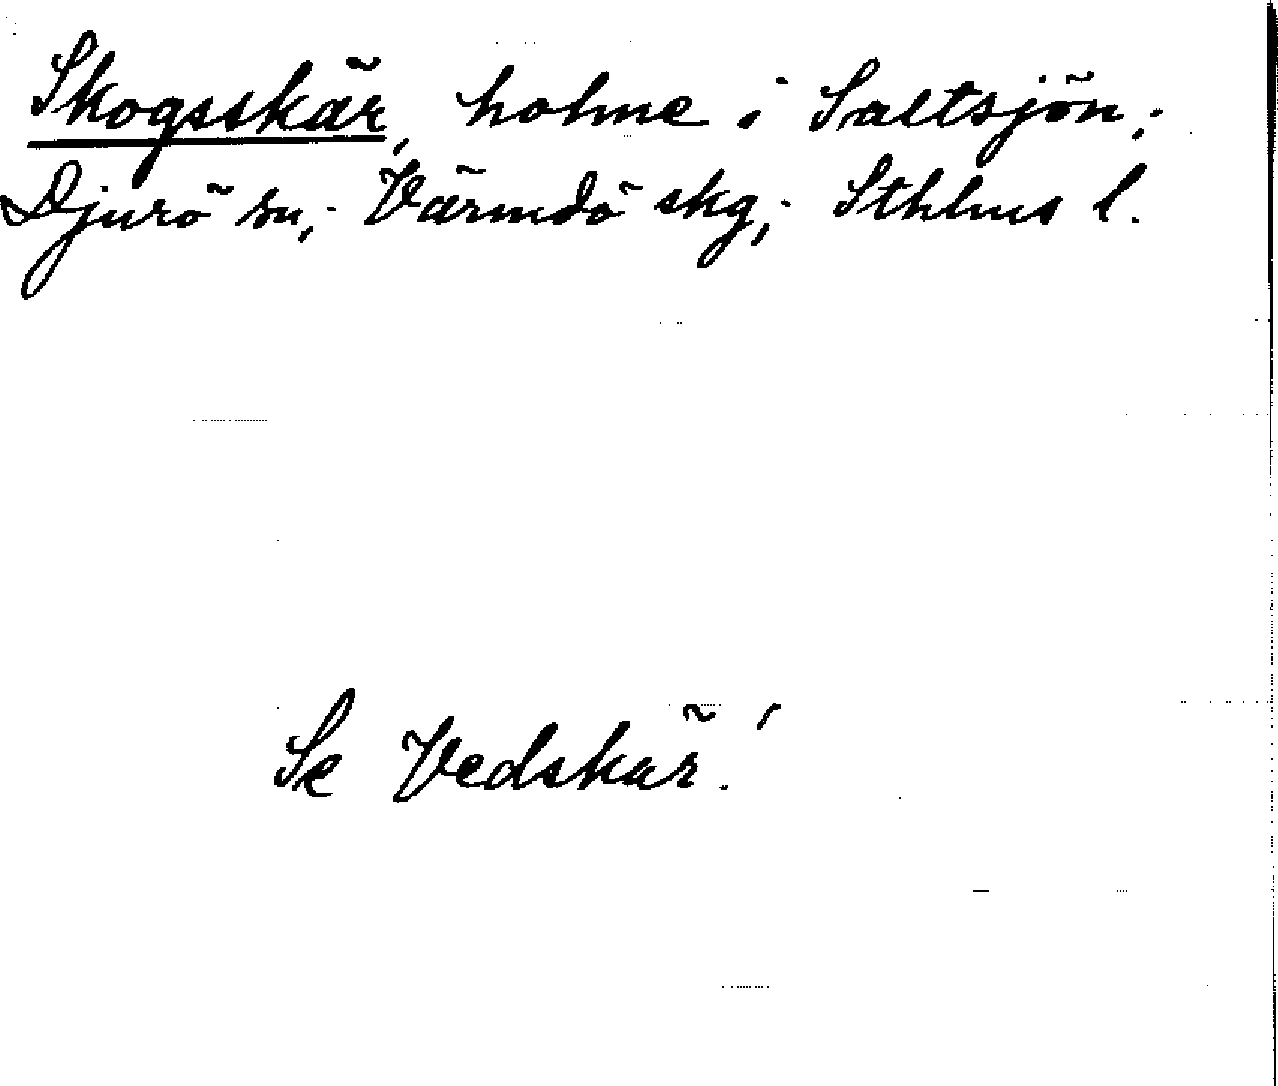 Skogsskär, holme i Saltsjön,-
Djurö sn,- Värmdö skg,- Sthlms l.
Se Vedskär!